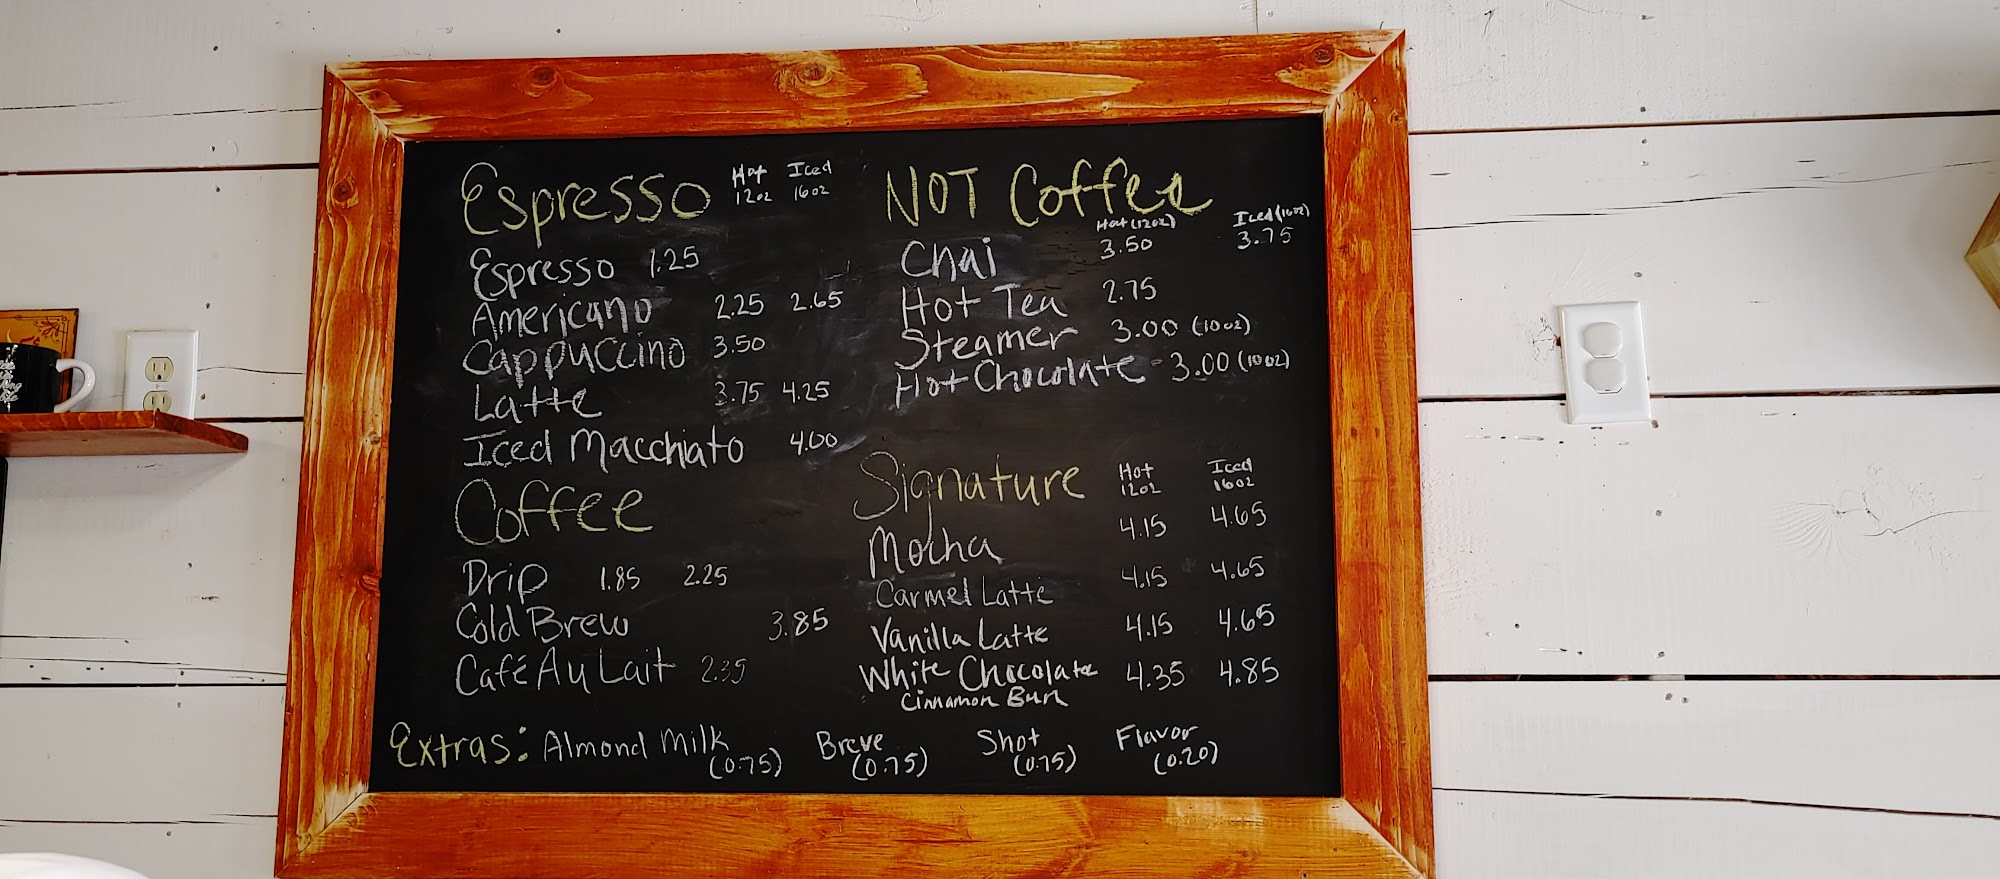 Espresso Hot Iced
12oz 16oz
Espresso 1.25
Americano 2.25 2.65
Cappuccino 3.50
Latte 3.75 4.25
Iced Macchiato 4.00
Coffee
Drip 1.85 2.25
Cold Brew 3.85
Café Au Lait 2.35
NOT Coffee
Hot (12oz) Iced (16oz)
Chai 3.50 3.75
Hot Tea 2.75
Steamer 3.00 (10oz)
Hot Chocolate 3.00 (10oz)
Signature Hot Iced
12oz 16oz
Mocha 4.15 4.65
Carmel Latte 4.15 4.65
Vanilla Latte 4.15 4.65
White Chocolate 4.35 4.85
Cinnamon Bun
Extras: Almond Milk Breve Shot Flavor
(0.75) (0.75) (0.75) (0.20)